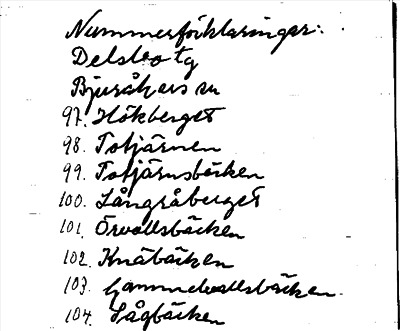 Nummerförklaringar:
Delsbo tg
Bjuråkers sn
97. Hökberget
98. Totjärnen
99. Totjärnsbäcken
100. Långråberget
101. Örvallsbäcken
102. Knäbäcken
103. Gammelvallsbäcken.
104. Sågbäcken